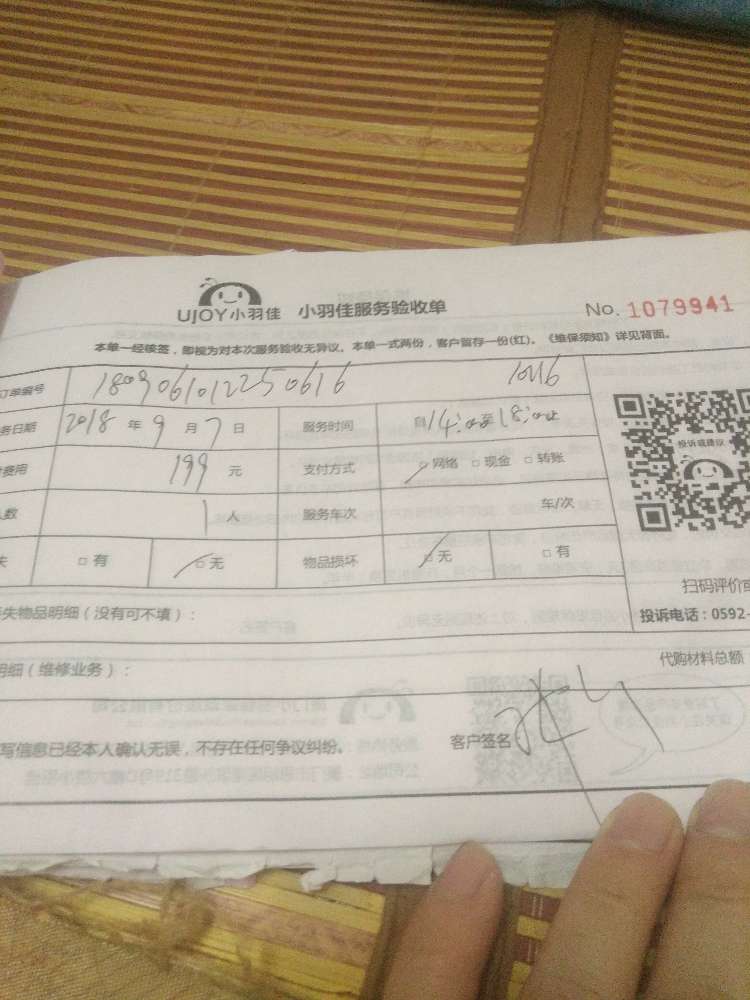 UJOY小羽佳 小羽佳服务验收单 No. 1079941
本单一经签，即视为对本次服务验收无异议。本单一式两份，客户留存一份(红)。《维保须知》详见背面。
订单编号 1809061012250616
务日期 2018 年 9 月 7 日 服务时间 自 14:00 至 18:00
费用 199 元 支付方式 □ 网络 □ 现金 □ 转账
人数 1 人 服务车次 车/次
失 □ 有 □ 无 物品损坏 □ 无 □ 有
投诉或建议
扫码评价或
失物品明细（没有可不填）： 投诉电话：0592-
明细（维修业务）： 代购材料总额
写信息已经本人确认无误，不存在任何争议纠纷。 客户签名